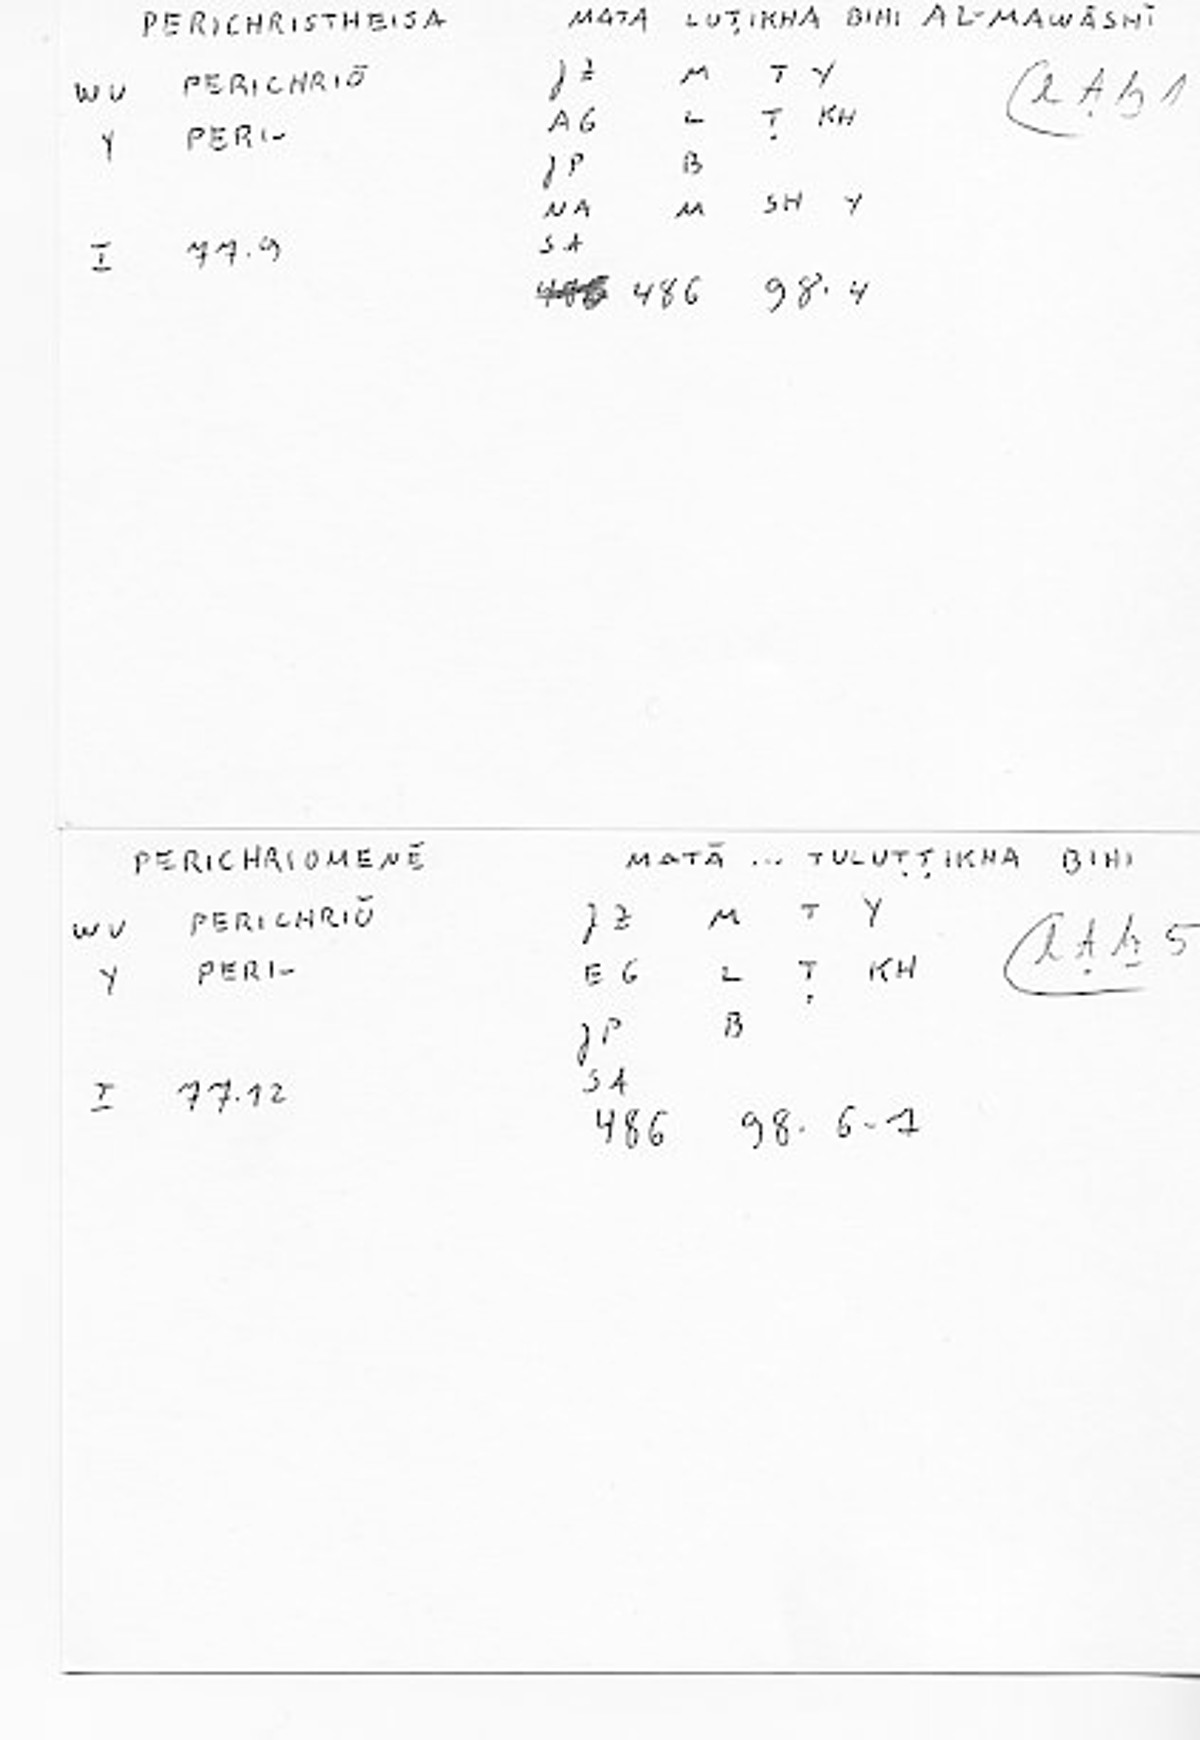 PERICHRISTHEISA MATĀ LUṬIKHA BIHI AL-MAWĀSHĪ
WV PERICHRIŌ JZ M T Y
(lṭḫ 1
Y PERI- AG L Ṭ KH
JP B
NA M SH Y
I 77.9 SA
486 98.4
PERICHRIOMENĒ MATĀ ... TULUṬṬIKHA BIHI
WV PERICHRIŌ JZ M T Y
(lṭḫ 5
Y PERI- EG L Ṭ KH
JP B
I 77.12 SA
486 98.6-7